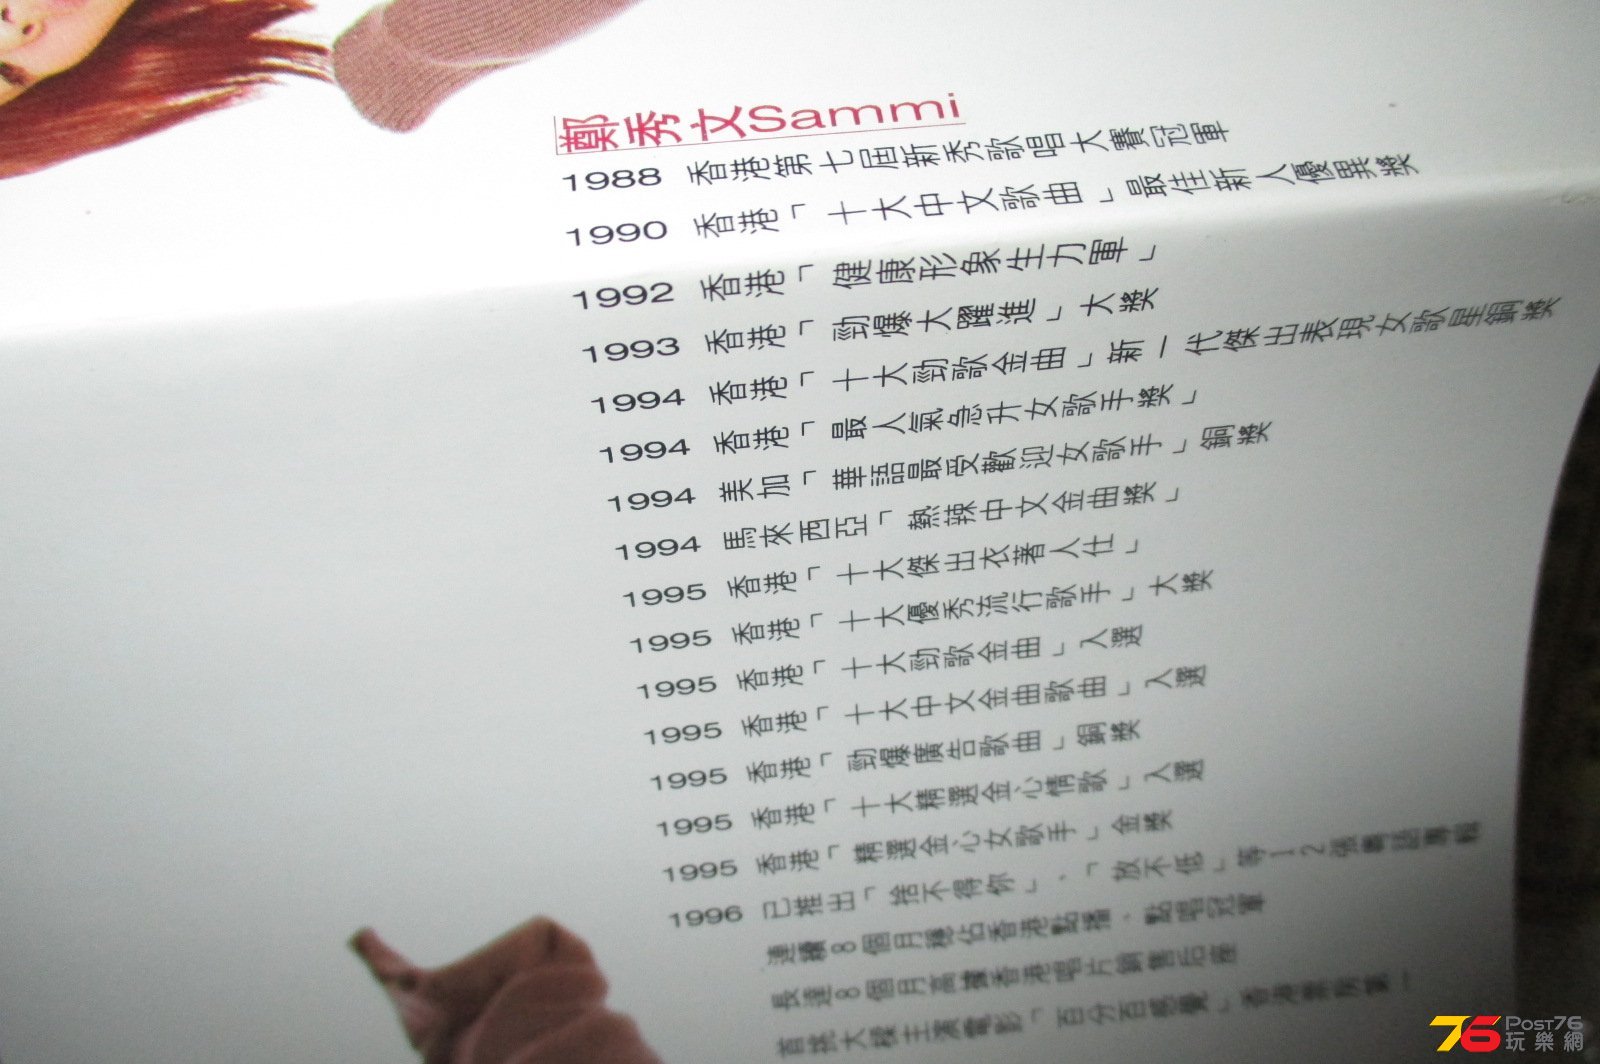 鄭秀文Sammi
1988 香港第七屆新秀歌唱大賽冠軍
1990 香港「十大中文歌曲」最佳新人優異獎
1992 香港「健康形象生力軍」
1993 香港「勁爆大躍進」大獎
1994 香港「十大勁歌金曲」新一代傑出表現女歌星銅獎
1994 香港「最人氣急升女歌手獎」
1994 美加「華語最受歡迎女歌手」銅獎
1994 馬來西亞「熱辣中文金曲獎」
1995 香港「十大傑出衣著人仕」
1995 香港「十大優秀流行歌手」大獎
1995 香港「十大勁歌金曲」入選
1995 香港「十大中文金曲歌曲」入選
1995 香港「勁爆廣告歌曲」銅獎
1995 香港「十大精選金心情歌」入選
1995 香港「精選金心女歌手」金獎
1996 已推出「捨不得你」、「放不低」等12張粵語專輯
連續8個月穩佔香港點播、點唱冠軍
長達8個月高據香港唱片銷售后座
首挑大樑主演電影「百分百感覺」香港票房第一
76 Post76
玩樂網